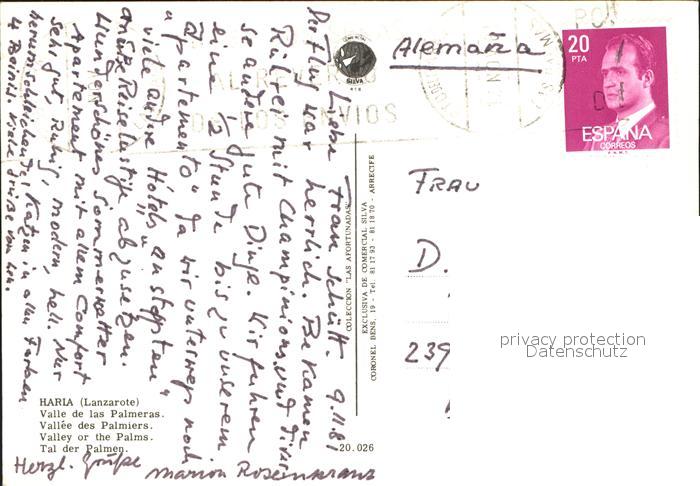 Liebe Frau Schütt. 9.11.81
Der Flug war herrlich. Bekamen
Rührei mit Champinions, und diver
se andere gute Dinge. Wir fuhren
eine 1/2 Stunde bis zu unserem
"apartemento" da wir unterwegs noch
viele andere Hotels anstoppten"
andere Reiselustige abzusetzen.
Wunderschönes Sommerwetter
Apartement mit allem Comfort
sehr gut, Ruhig, modern, hell. Nur
herumschleichender Katzen in allen Farben
Viele Grüße von
Herzl. Grüße Marion Rosenkranz
HARIA (Lanzarote)
Valle de las Palmeras.
Vallée des Palmiers.
Valley or the Palms.
Tal der Palmen.
20.026
COLECCION "LAS AFORTUNADAS"
EXCLUSIVA DE COMERCIAL SILVA
CORONEL BENS, 19 - Tel. 81 17 93 - 81 18 70 - ARRECIFE
SILVA
ENVIOS
Alemania
20
PTA
ESPAÑA
CORREOS
F.N.M.T.
FRAU
D.
239
privacy protection
Datenschutz